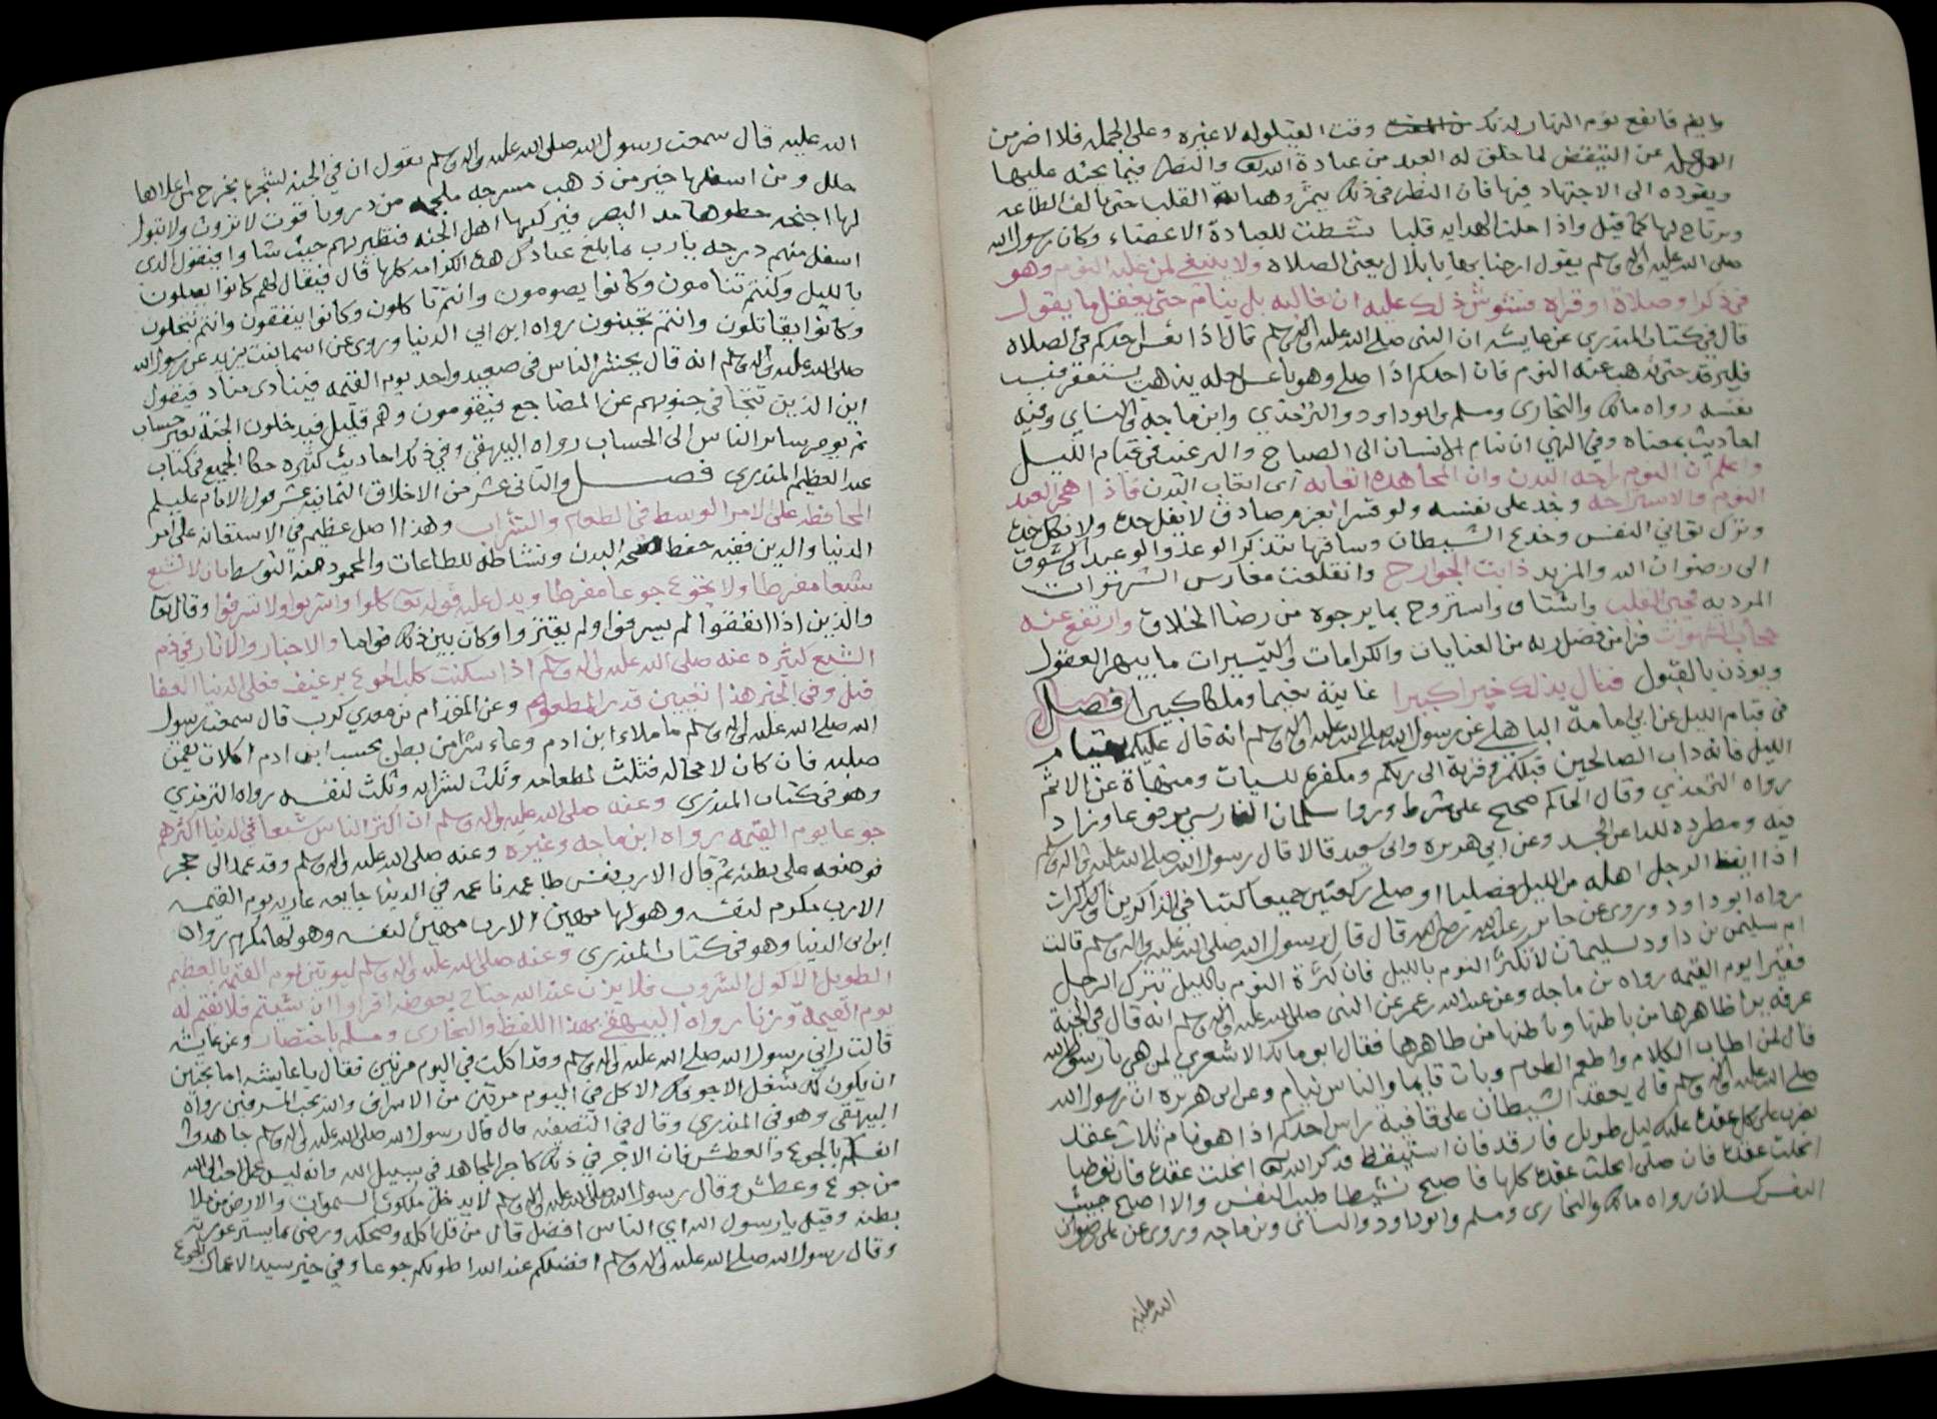 وايضا فانفع نوم النهار لذلك وقت القيلوله لا غيره وعلى الجمله فلا اضر من
عن التيقض لما خلق له العبد من عبادة الله تعالى والنظر فيما يحثه عليها
ويقوده الى الاجتهاد فيها فان النظر في ذلك يثمر القلب حتى يالف الطاعه
ويرتاح لها كما قيل واذا حلت الهدايه قلبا نشطت للعبادة الاعضاء وكان رسول الله
صلى الله عليه واله وسلم يقول ارحنا بها يا بلال يعني الصلاه ولا ينبغي لمن غلبه النوم وهو
في ذكر او صلاة او قراه فشوش ذلك عليه ان يغالبه بل ينام حتى يعقل ما يقول
قال في كتاب المنذري عن عايشه ان النبي صلى الله عليه واله وسلم قال اذا نعس احدكم في الصلاه
فليرقد حتى يذهب عنه النوم فان احدكم اذا صلى وهو ناعس لعله يذهب يستغفر فيسب
نفسه رواه مالك والبخاري ومسلم وابوداود والترمذي وابن ماجه والنساي وفيه
احاديث بمعناه وفي النهي ان ينام الانسان الى الصباح والترغيب في قيام الليل
واعلم ان النوم راحه البدن وان المجاهده اتعابه اى اتعاب البدن فاذا هجر العبد
النوم والاستراحه وجد على نفسه ولو قسرا بعزم صادق لا يفل حده ولا يكل جده
ونزل تعاني النفس وخدع الشيطان وساقها بتذكر الوعد والوعيد وتشوق
الى رضوان الله والمزيد ذابت الجوارح وانقلعت مغارس الشهوات
المرديه فحيي القلب واشتاق واستروح بما يرجوه من رضا الخلاق وارتفع عنه
حجاب الشهوات فراى من فضل ربه من العنايات والكرامات والتيسيرات ما يبهر العقول
ويوذن بالقبول فنال بذلك خيرا كبيرا غايته نعيما وملكا كبيرا فصل
في قيام الليل عن ابي امامة الباهلي عن رسول الله صلى الله عليه واله وسلم انه قال عليكم بقيام
الليل فانه داب الصالحين قبلكم وقربة الى ربكم ومكفرة للسيات ومنهاة عن الاثم
رواه الترمذي وقال الحاكم صحيح على شرط وروا سلمان الفارسي مرفوعا وزاد
فيه ومطرده للداء عن الجسد وعن ابي هريره وابي سعيد قالا قال رسول الله صلى الله عليه واله وسلم
اذا ايقظ الرجل اهله من الليل فصليا او صلى ركعتين جميعا كتبا في الذاكرين والذاكرات
رواه ابوداود وروى عن جابر بن عبدالله قال قال رسول الله صلى الله عليه واله وسلم قالت
ام سليمن بن داود لسليمان لا تكثر النوم بالليل فان كثرة النوم بالليل تترك الرجل
فقيرا يوم القيمه رواه بن ماجه وعن عبدالله بن عمر عن النبي صلى الله عليه واله وسلم انه قال في الجنة
غرفة يرا ظاهرها من باطنها وباطنها من ظاهرها فقال ابو مالك الاشعري لمن هي يا رسول الله
قال لمن اطاب الكلام واطعم الطعام وبات قايما والناس نيام وعن ابي هريره ان رسول الله
صلى الله عليه واله وسلم قال يعقد الشيطان على قافية راس احدكم اذا هو نام ثلاث عقد
يضرب على كل عقدة عليك ليل طويل فارقد فان استيقظ فذكر الله تعالى انحلت عقدة فان توضا
انحلت عقدة فان صلى انحلت عقده كلها فاصبح نشيطا طيب النفس والا اصبح خبيث
النفس كسلان رواه مالك والبخاري ومسلم وابوداود والنسائى وبن ماجه وروى عن على رضوان
الله عليه
الله عليه قال سمعت رسول الله صلى الله عليه واله وسلم يقول ان في الجنة لشجرة يخرج من اعلاها
حلل ومن اسفلها خيل من ذهب مسرجه ملجمه من در وياقوت لا تروث ولا تبول
لها اجنحه خطوها مد البصر فيركبها اهل الجنه فتطير بهم حيث شاوا فيقول الذى
اسفل منهم درجه يارب بما بلغ عبادك هذه الكرامه كلها قال فيقال لهم كانوا يصلون
بالليل وكنتم تنامون وكانوا يصومون وانتم تاكلون وكانوا ينفقون وانتم تبخلون
وكانوا يقاتلون وانتم تجبنون رواه ابن ابي الدنيا وروى عن اسما بنت يزيد عن رسول الله
صلى الله عليه واله وسلم انه قال يحشر الناس في صعيد واحد يوم القيمه فينادى مناد فيقول
اين الذين تتجافى جنوبهم عن المضاجع فيقومون وهم قليل فيدخلون الجنة بغير حساب
ثم يومر بساير الناس الى الحساب رواه البيهقي وفي ذلك احاديث كثيره حكا الجميع في كتاب
عبد العظيم المنذرى فصل والثاني عشر من الاخلاق الثمانية عشر قول الامام عليلم
المحافظه على الامر الوسط في الطعام والشراب وهذا اصل عظيم في الاستقامه على امر
الدنيا والدين ففيه حفظ صحه البدن ونشاطه للطاعات والمحمود هذه التوسط بان لا تشبع
شبعا مفرطا ولا تجوع جوعا مفرطا ويدل عليه قوله تعالى كلوا واشربوا ولا تسرفوا وقال تعا
والذين اذا انفقوا لم يسرفوا ولم يقتروا وكان بين ذلك قواما والاخبار والاثار في ذم
الشبع كثيره عنه صلى الله عليه واله وسلم اذا سكنت كلب الجوع برغيف فعلى الدنيا العفا
قيل وفي الخبر هذا تعيين قدر المطعوم وعن المقدام بن معدي كرب قال سمعت رسول
الله صلى الله عليه واله وسلم ما ملاء ابن ادم وعاء شرا من بطن بحسب ابن ادم اكلات يقمن
صلبه فان كان لا محاله فثلث لطعامه وثلث لشرابه وثلث لنفسه رواه الترمذي
وهو في كتاب المنذرى وعنه صلى الله عليه واله وسلم ان اكثر الناس شبعا في الدنيا اكثرهم
جوعا يوم القيمه رواه ابن ماجه وغيره وعنه صلى الله عليه واله وسلم وقد عمد الى حجر
فوضعه على بطنه ثم قال الا رب نفس طاعمه ناعمه في الدنيا جايعه عاريه يوم القيمه
الا رب مكرم لنفسه وهو لها مهين الا رب مهين لنفسه وهو لها مكرم رواه
ابن ابي الدنيا وهو في كتاب المنذرى وعنه صلى الله عليه واله وسلم ليوتين يوم القيمه بالعظيم
الطويل الاكول الشروب فلا يزن عند الله جناح بعوضه اقراوا ان شيتم فلا نقيم له
يوم القيمه وزنا رواه البيهقي بهذا اللفظ والبخارى ومسلم باختصار وعن عايشه
قالت راني رسول الله صلى الله عليه واله وسلم وقد اكلت في اليوم مرتين فقال يا عايشه اما تحبين
ان يكون لك شغل الا جوفك الاكل في اليوم مرتين من الاسراف والله لا يحب المسرفين رواه
البيهقي وهو في المنذري وقال في التصفيه قال قال رسول الله صلى الله عليه واله وسلم جاهدوا
انفسكم بالجوع والعطش فان الاجر في ذلك كاجر المجاهد في سبيل الله وانه ليس عمل احب الى الله
من جوع وعطش وقال رسول الله صلى الله عليه واله وسلم لا يدخل ملكوت السموات والارض من ملا
بطنه وقيل يارسول الله اي الناس افضل قال من قل اكله وضحكه ورضى بما يستر عورته
وقال رسول الله صلى الله عليه واله وسلم افضلكم عند الله اطولكم جوعا وفي خبر سيد الاعمال الجوع